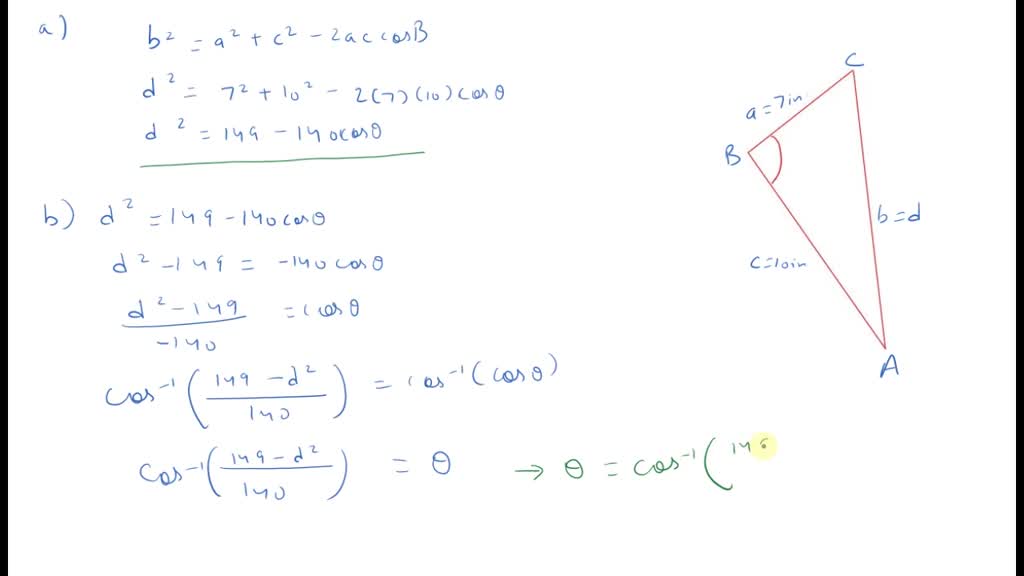 a) b² = a² + c² - 2ac cosB
d² = 7² + 10² - 2(7)(10) cosθ
d² = 149 - 140cosθ
b) d² = 149 - 140cosθ
d² - 149 = -140cosθ
d² - 149 / -140 = cosθ
cos⁻¹(149 - d² / 140) = cos⁻¹(cosθ)
cos⁻¹(149 - d² / 140) = θ → θ = cos⁻¹(14
C
a = 7in
B
b = d
c = 10in
A